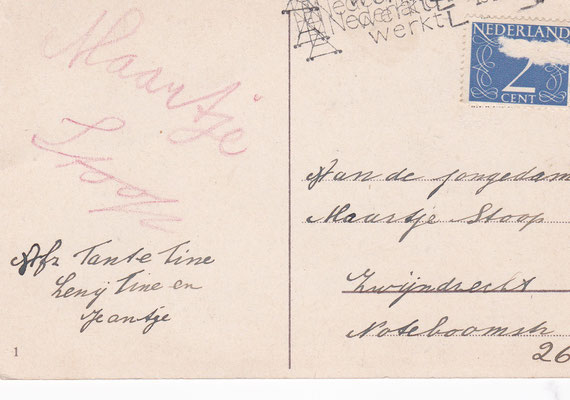 Maartje
Stoop
Afz Tante Tine
Leny Tine en
Jeantje
1
Nederland
werkt
NEDERLAND
2
CENT
Aan de jongedam
Maartje Stoop
Zwijndrecht
Noteboomstr
26